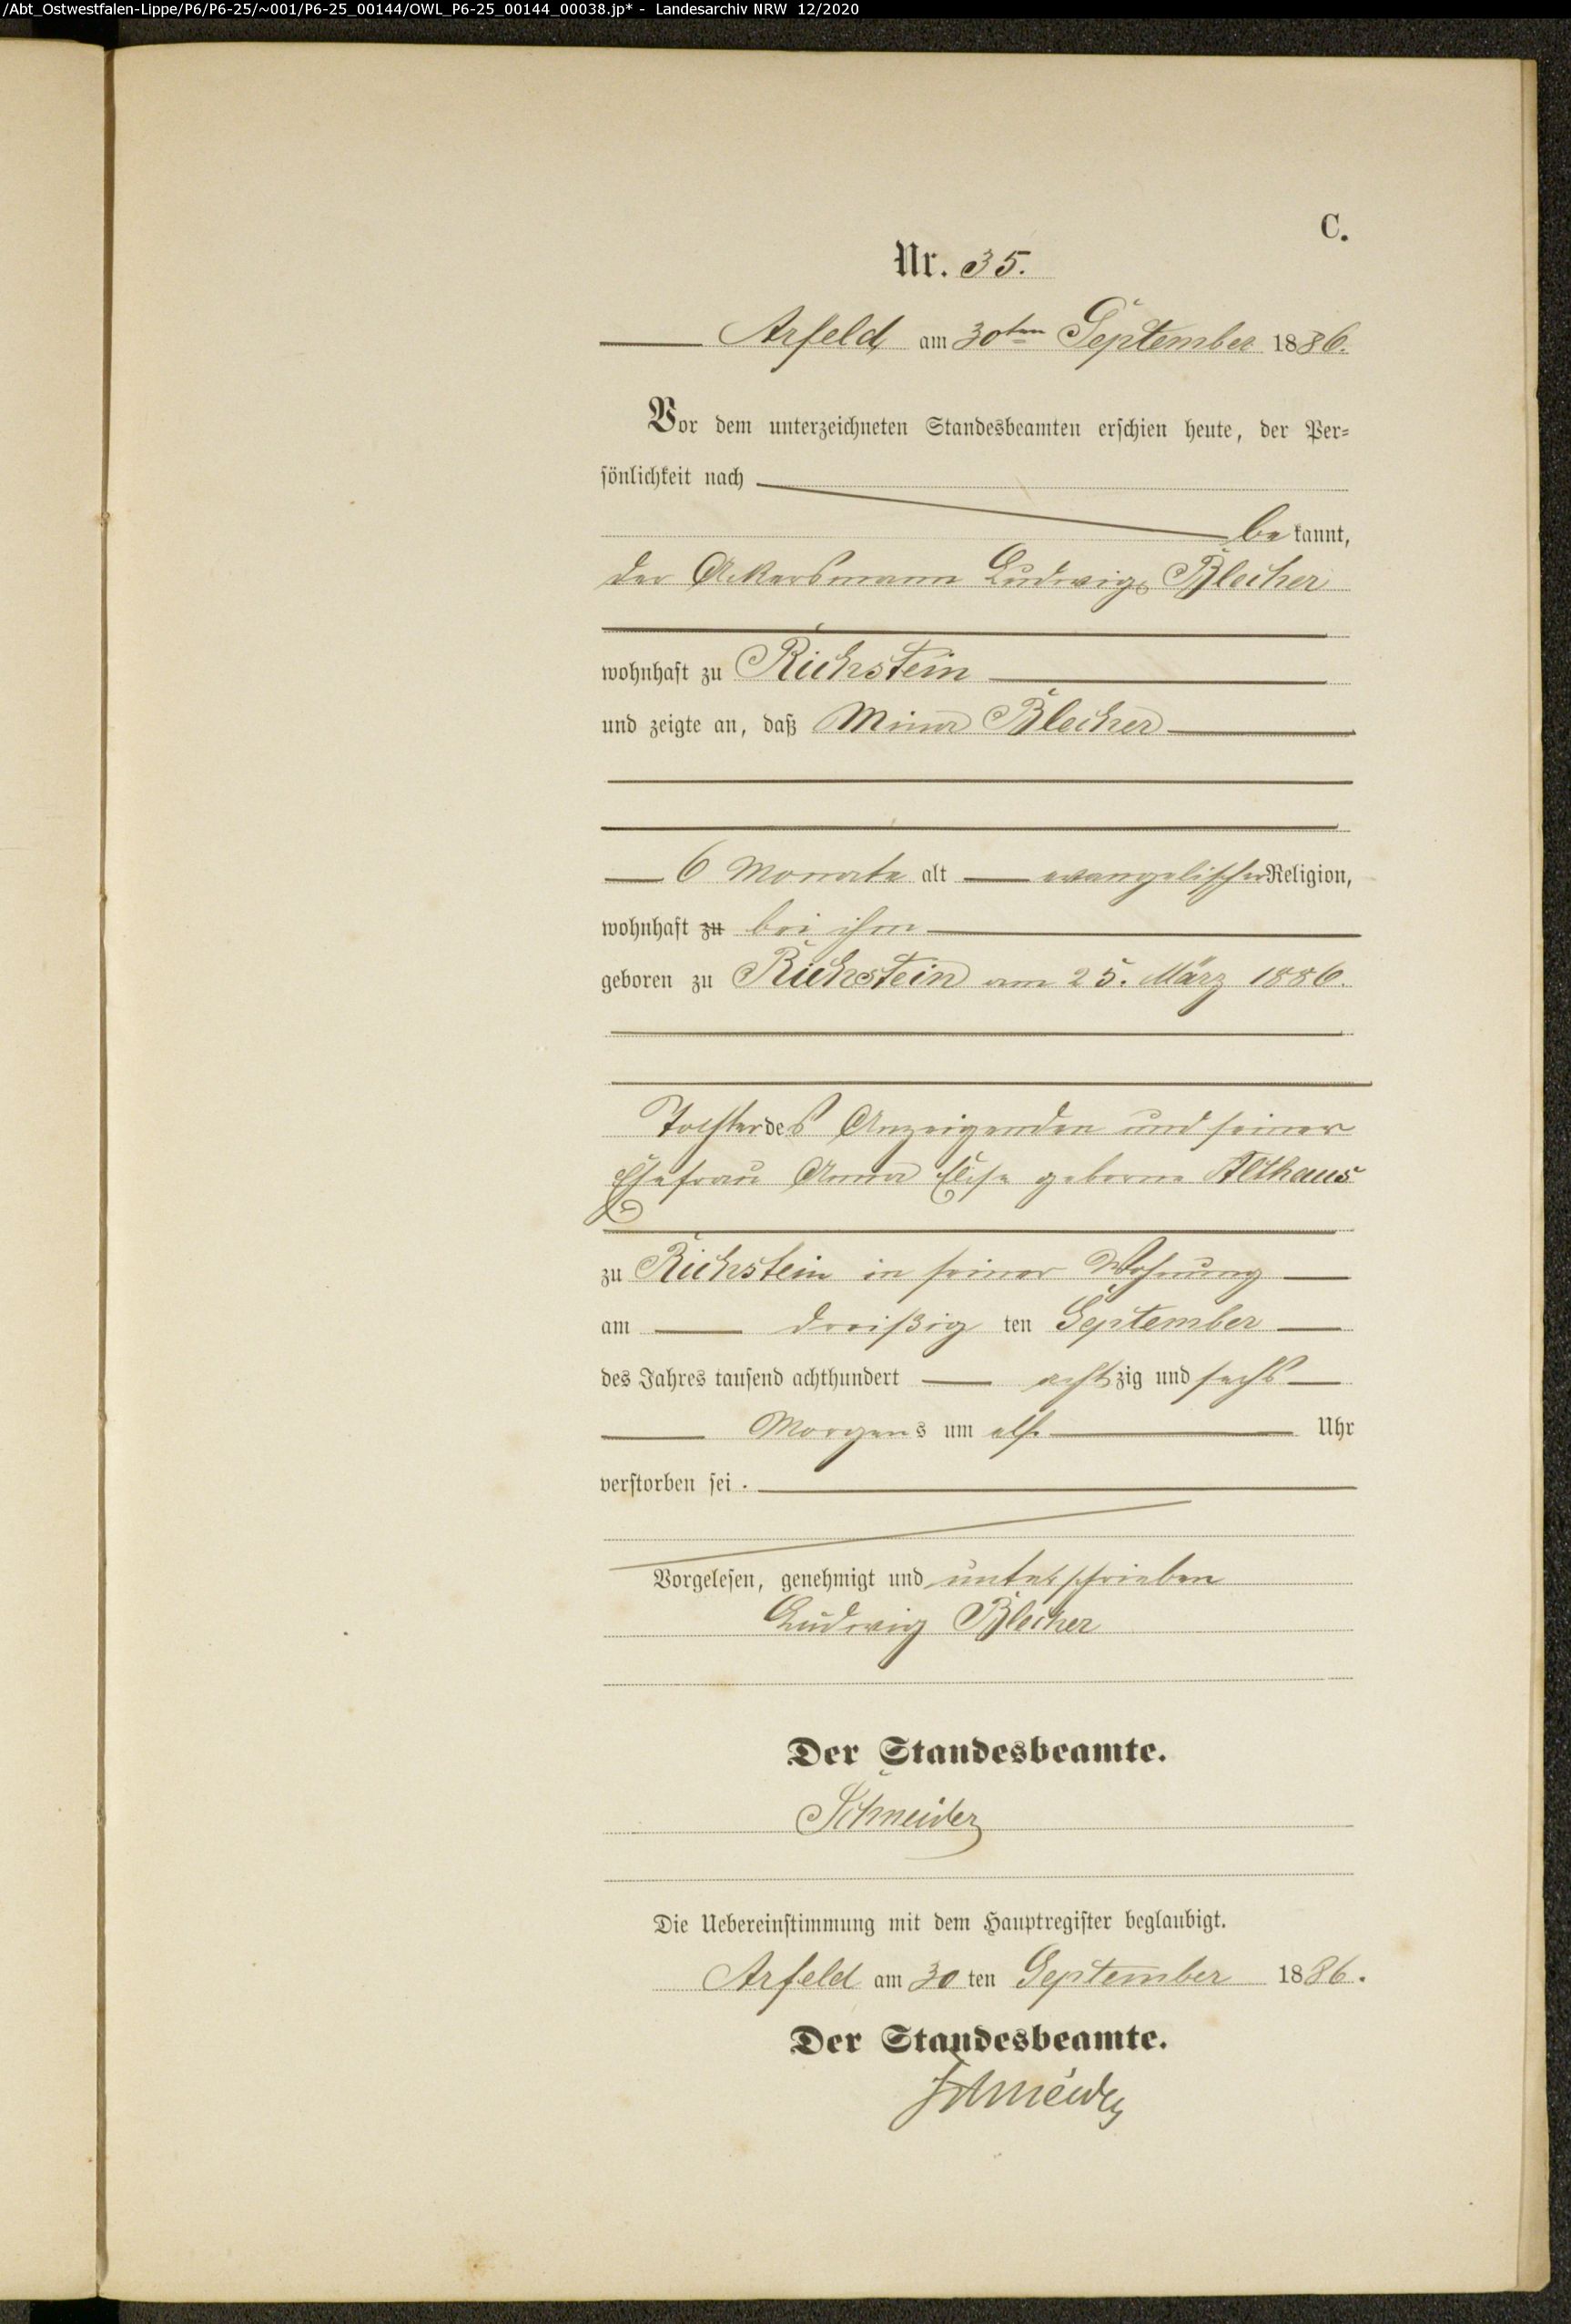 /Abt_Ostwestfalen-Lippe/P6/P6-25/~001/P6-25_00144/OWL_P6-25_00144_00038.jp* - Landesarchiv NRW 12/2020
C.
Nr. 35.
Arfeld, am 30ten September 1886.
Vor dem unterzeichneten Standesbeamten erschien heute, der Per-
sönlichkeit nach
bekannt,
der Ackersmann Ludwig Blecher
wohnhaft zu Richstein
und zeigte an, daß Mina Blecher
6 Monate alt evangelischer Religion,
wohnhaft zu bei ihm
geboren zu Richstein am 25. März 1886.
Tochter des Anzeigenden und seiner
Ehefrau Anna Elise geborne Althaus
zu Richstein in seiner Wohnung
am dreißig ten September
des Jahres tausend achthundert achtzig und sechs
Morgens um elf Uhr
verstorben sei.
Vorgelesen, genehmigt und unterschrieben
Ludwig Blecher
Der Standesbeamte.
Schneider
Die Uebereinstimmung mit dem Hauptregister beglaubigt.
Arfeld am 30 ten September 1886.
Der Standesbeamte.
Schneider